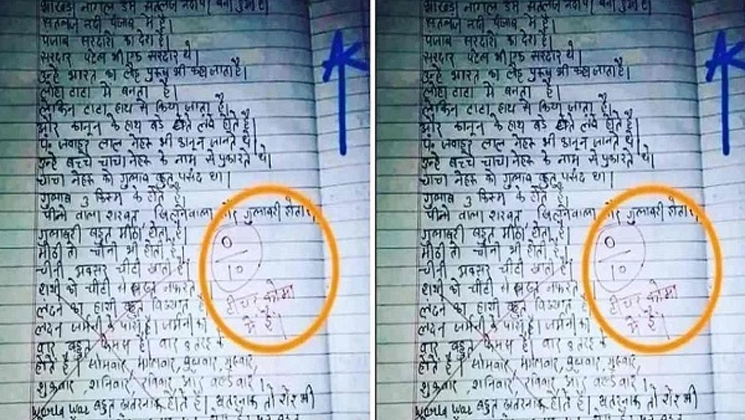 भाखड़ा नांगल डैम सतलुज नदी पर बना हुआ है।
सतलुज नदी पंजाब में है।
पंजाब सरदारों का देश है।
सरदार पटेल भी एक सरदार थे।
उन्हें भारत का लौह पुरुष भी कहा जाता है।
लोहा टाटा में बनता है।
लेकिन टाटा हाथ से किया जाता है।
और कानून के हाथ बड़े लंबे होते है।
पं. जवाहर लाल नेहरू भी कानून जानते थे।
उन्हें बच्चे चाचा नेहरू के नाम से पुकारते थे।
चाचा नेहरू को गुलाब बहुत पसंद था।
गुलाब 3 किस्म के होते है।
पीने वाला शरबत और गुलाबरी होता
गुलाबरी बहुत मीठा होता है।
मीठी तो चीनी भी होती है।
चीनी अक्सर चींटी खाती है।
हाथी को चींटी से बहुत नफरत है।
लंदन का हाथी बहुत विख्यात है।
लंदन जर्मनी के पास है। जर्मनी का
वार बहुत फेमस है। वार 8 तरह के
होते है। सोमवार, मंगलवार, बुधवार, गुरुवार,
शुक्रवार, शनिवार, रविवार और वर्ल्ड वार।
World War बहुत खतरनाक होता है। खतरनाक तो शेर भी
0
10
टीचर कोमा
में है।
AK
भाखड़ा नांगल डैम सतलुज नदी पर बना हुआ है।
सतलुज नदी पंजाब में है।
पंजाब सरदारों का देश है।
सरदार पटेल भी एक सरदार थे।
उन्हें भारत का लौह पुरुष भी कहा जाता है।
लोहा टाटा में बनता है।
लेकिन टाटा हाथ से किया जाता है।
और कानून के हाथ बड़े लंबे होते है।
पं. जवाहर लाल नेहरू भी कानून जानते थे।
उन्हें बच्चे चाचा नेहरू के नाम से पुकारते थे।
चाचा नेहरू को गुलाब बहुत पसंद था।
गुलाब 3 किस्म के होते है।
पीने वाला शरबत और गुलाबरी होता
गुलाबरी बहुत मीठा होता है।
मीठी तो चीनी भी होती है।
चीनी अक्सर चींटी खाती है।
हाथी को चींटी से बहुत नफरत है।
लंदन का हाथी बहुत विख्यात है।
लंदन जर्मनी के पास है। जर्मनी का
वार बहुत फेमस है। वार 8 तरह के
होते है। सोमवार, मंगलवार, बुधवार, गुरुवार,
शुक्रवार, शनिवार, रविवार और वर्ल्ड वार।
World War बहुत खतरनाक होता है। खतरनाक तो शेर भी
0
10
टीचर कोमा
में है।
AK